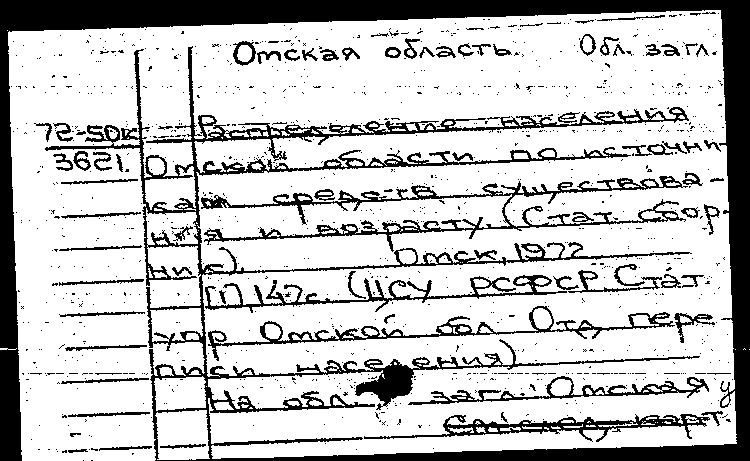 Омская область. Обл. загл.
72-50к Распределение населения
3621. Омской области по источни-
кам средств существова-
ния и возрасту. (Стат. сбор-
ник). Омск, 1972.
[1], 147с. (ЦСУ РСФСР. Стат.
упр Омской обл Отд пере
писи населения)
На обл. загл.: Омская у
См. след. карт.